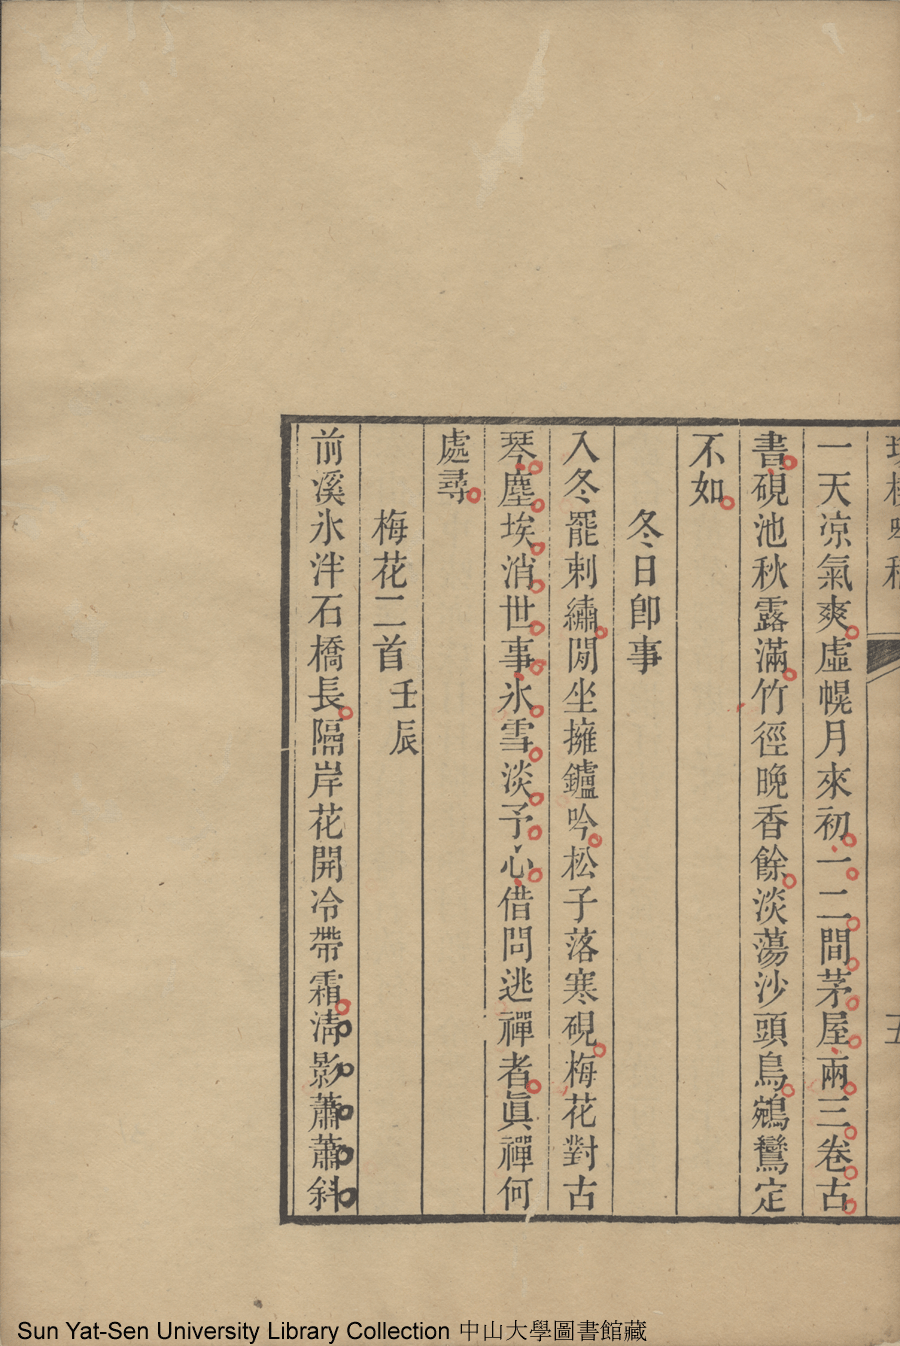 一天凉氣爽虛幌月來初一二間茅屋兩三卷古
書硯池秋露滿竹徑晚香餘淡蕩沙頭鳥鵷鸞定
不如
冬日卽事
入冬罷刺繡閒坐擁鑪吟松子落寒硯梅花對古
琴塵埃消世事氷雪淡予心借問逃禪者眞禪何
處尋
梅花二首壬辰
前溪氷泮石橋長隔岸花開冷帶霜淸影蕭蕭斜
Sun Yat-Sen University Library Collection 中山大學圖書館藏